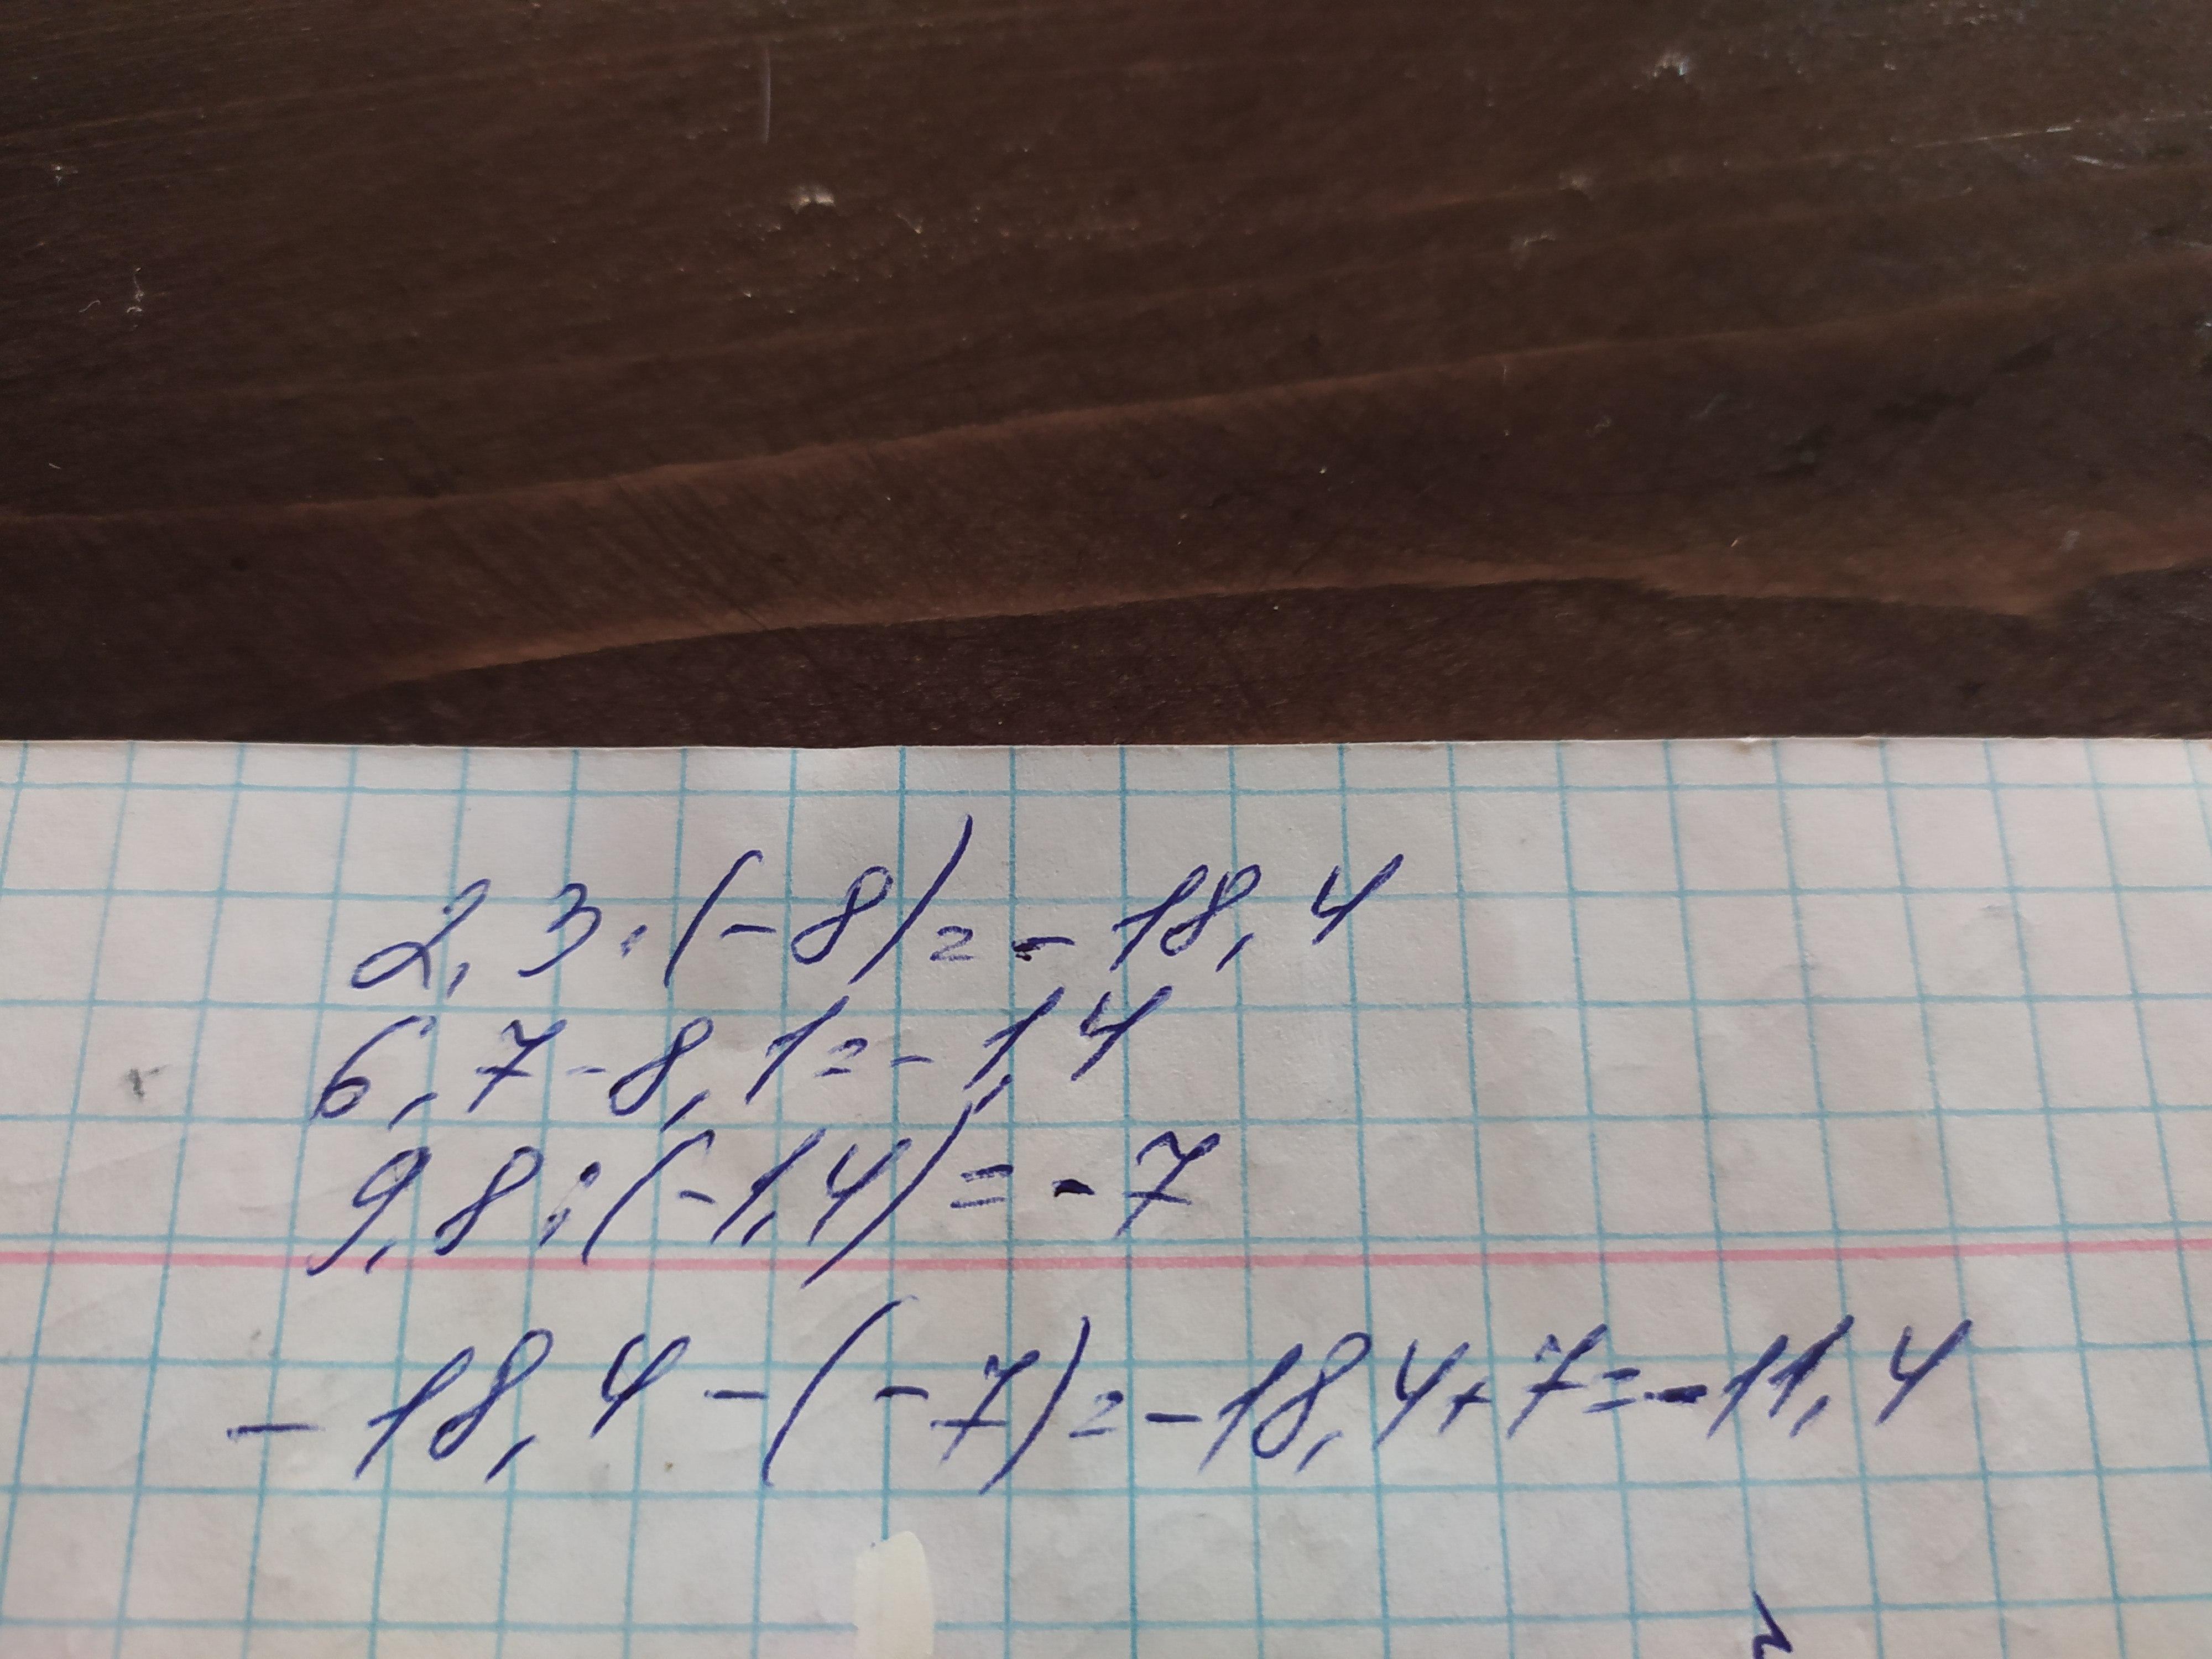 2,3·(-8)=-18,4
6,7-8,1=-1,4
9,8:(-1,4)=-7
-18,4-(-7)=-18,4+7=-11,4